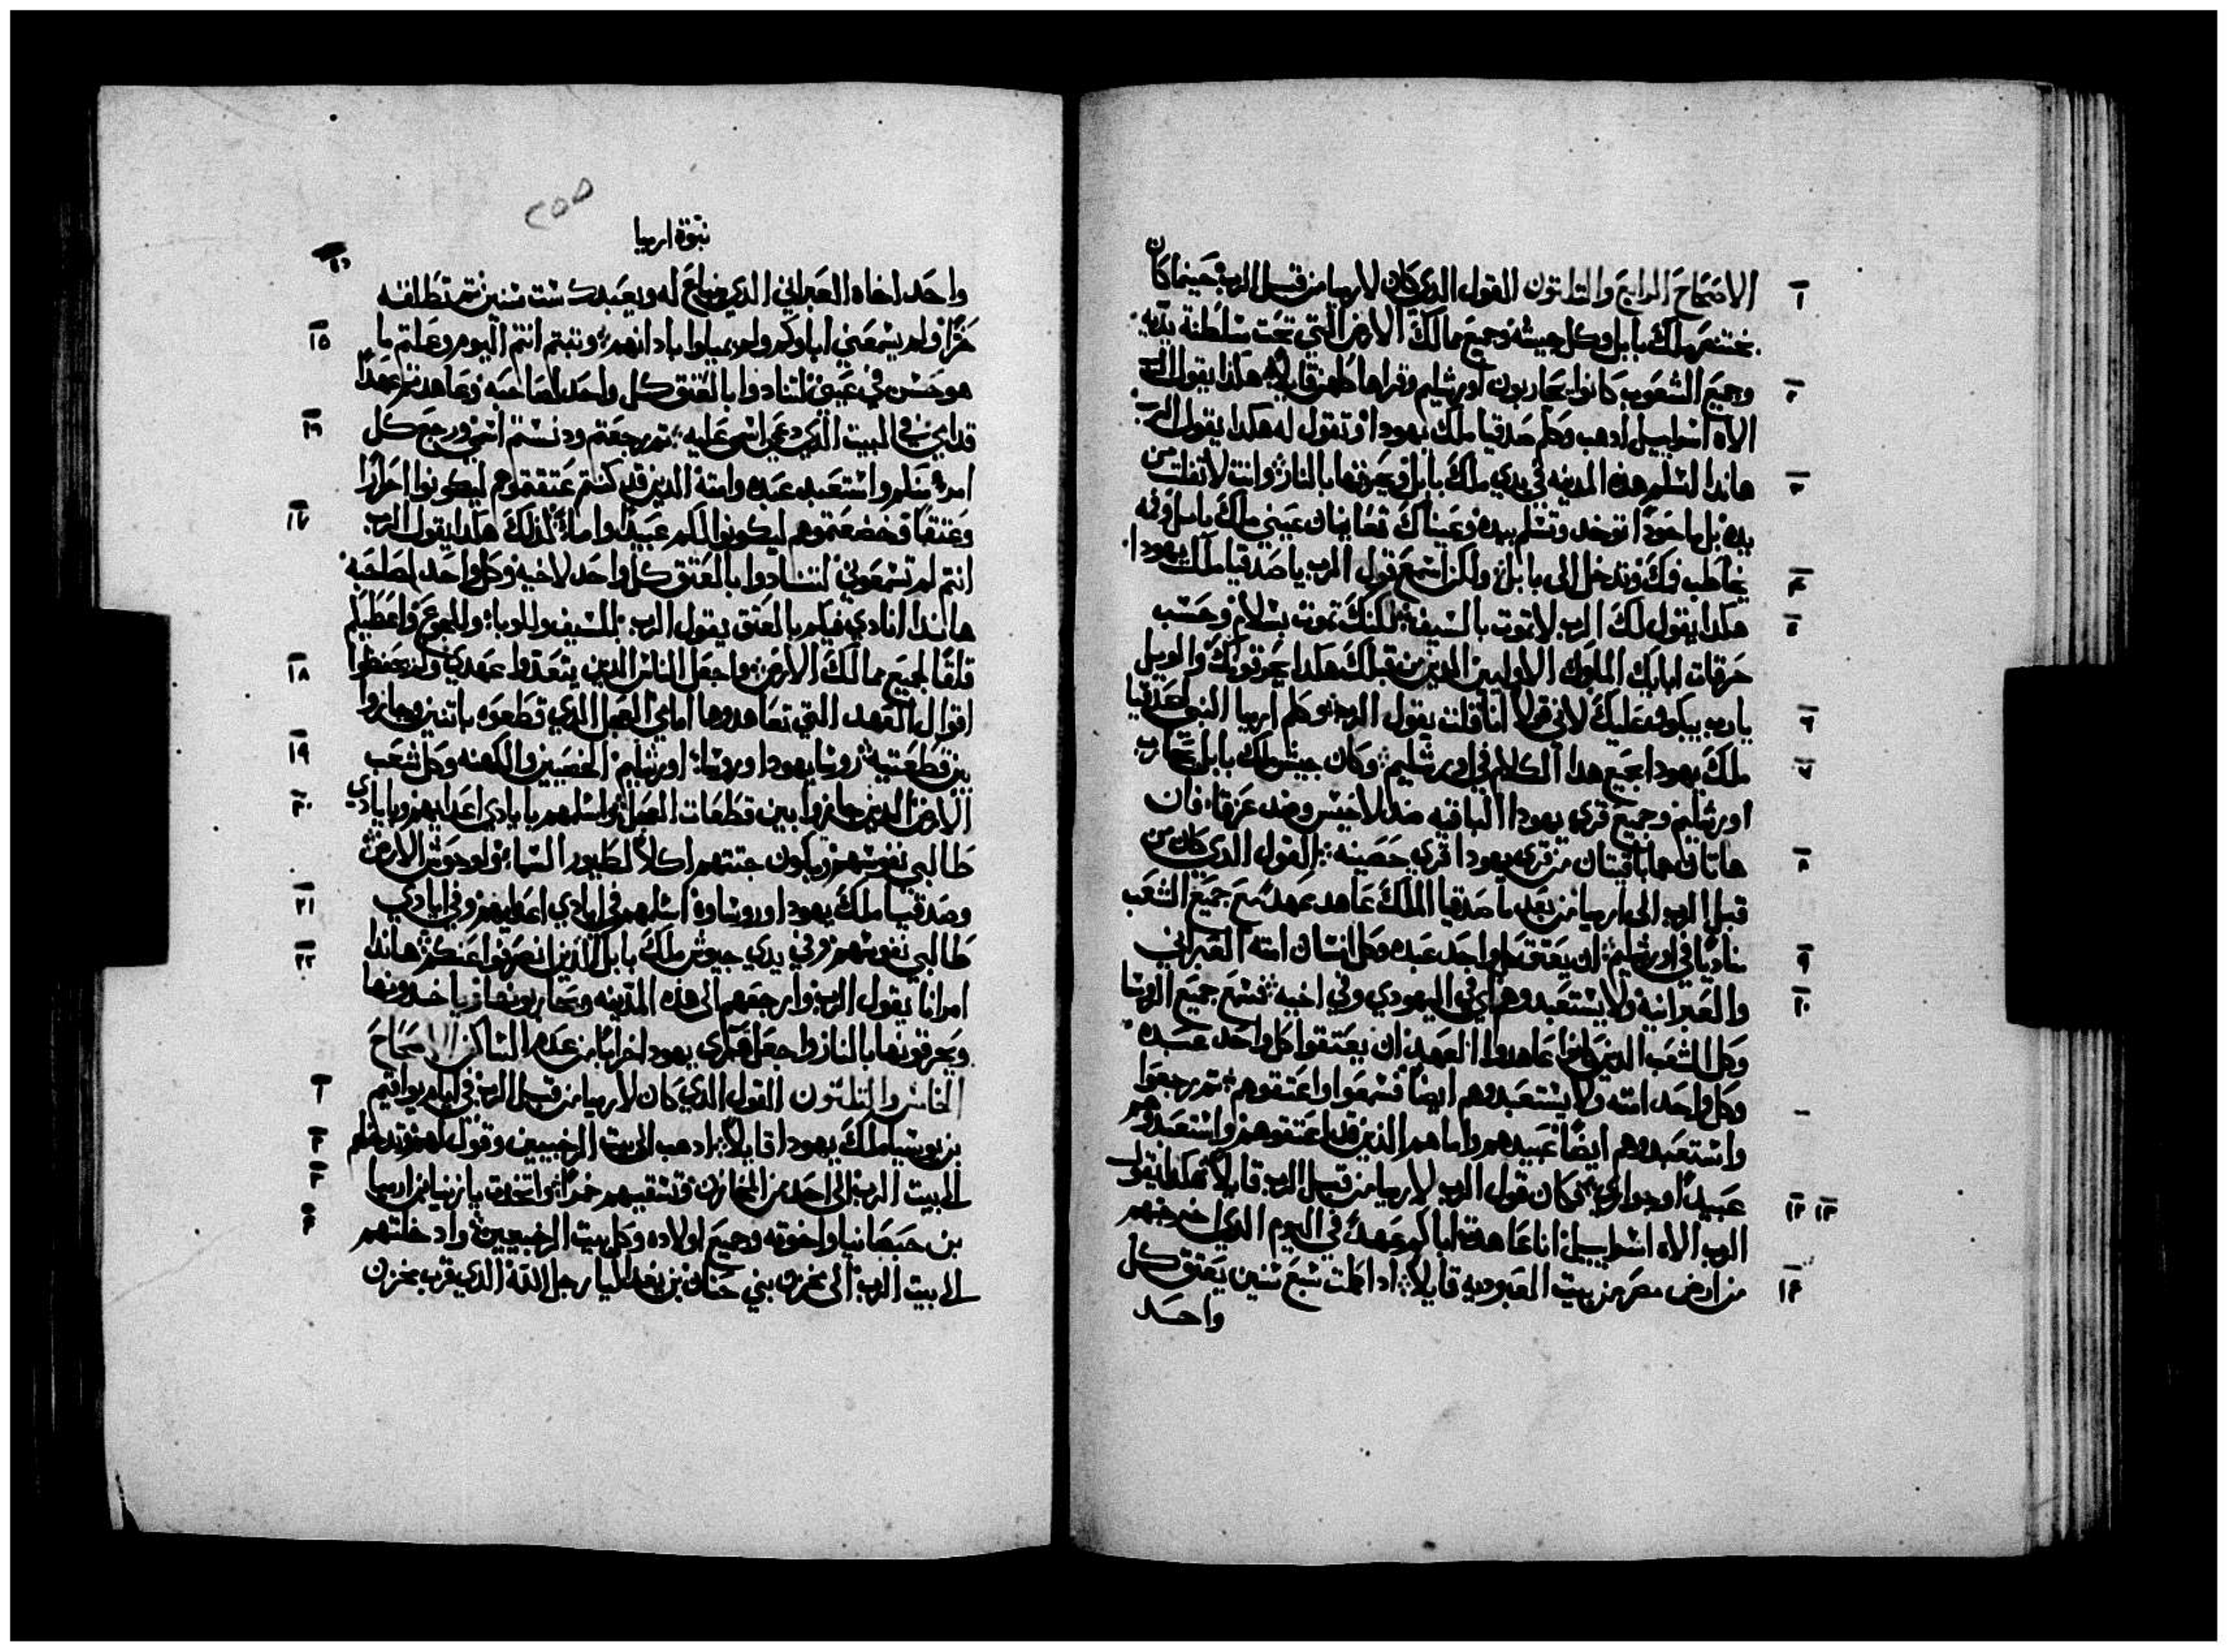 الاصحاح الرابع والثلثون القول الذي كان لارميا من قبل الرب حينما كان
بختنصر ملك بابل وكل جيشه وجميع ممالك الارض التي تحت سلطنة يديه
وجميع الشعوب كانوا يحاربون اورشليم وقراها كلهن قايلاً هكذا يقول الرب
الاه اسراييل ادهب وكلم صدقيا ملك يهودا وتقول له هكدا يقول الرب
هاندا اسلم هذه المدينه في يدي ملك بابل ويحرقها بالنار وانت لا تفلت من
يده بل ماخوذاً توخد وتسلم بيده وعيناك تعاينان عيني ملك بابل وفمه
يخاطب فمك وتدخل الى بابل ولكن اسمع قول الرب يا صدقيا ملك يهودا
هكدا يقول لك الرب لا تموت بالسيف لكنك تموت بسلام وحسب
حرقات ابايك الملوك الاوليين الدين من قبلك هكدا يحرقونك والويل
يارب يبكون عليك لاني قولاً انا قلت يقول الرب وكلم ارميا النبي لصدقيا
ملك يهودا بجميع هدا الكلام في اورشليم وكان جيش ملك بابل يحارب
اورشليم وجميع قري يهودا الباقيه ضد لاخيس وضد عزقا فان
هاتان هما باقيتان من قري يهودا قري حصينه القول الذي كان من
قبل الرب الى ارميا من بعد ما صدقيا الملك عاهد عهداً مع جميع الشعب
مناديًا في اورشليم ان يعتق كل واحد عبده وكل انسان امته العبراني
والعبرانية ولا يستعبدوهم اي في اليهودي وفي اخيه فسمع جميع الروسا
وكل الشعب الذين كانوا عاهدوا العهد ان يعتقوا كل واحد عبده
وكل واحد امته ولا يستعبدوهم ايضاً فسمعوا واعتقوهم ثم رجعوا
واستعبدوهم ايضاً عبيدهم واماهم الذين قد اعتقوهم واستعبدوهم
عبيداً وجواري ثم كان قول الرب لارميا من قبل الرب قايلاً هكدا يقول
الرب الاه اسراييل انا عاهدت اباكم عهداً في اليوم الذي اخرجتهم
من ارض مصر من بيت العبوديه قايلاً ادا كملت سبع سنين يعتق كل
واحد
نبوة ارميا
واحد اخاه العبراني الدي يباع له ويعبدك ست سنين ثم تطلقه
حرًا ولم يسمعني اباوكم ولم يميلوا بادانهم وتبتم انتم اليوم وعلتم ما
هو حسن في عيني لتنادوا بالعتق كل واحد لصاحبه وعاهدتم عهداً
قدامي في البيت الذي دعي اسمي عليه ثم رجعتم ودنستم اسمي ورجع كل
امرء منكم واستعبد عبده وامته الدين قد كنتم عتقتموهم ليكونوا احرارًا
وعتقا وخضعتموهم ليكونوا لكم عبيداً واماءً لذلك هكدا يقول الرب
انتم لم تسمعوني لتنادوا بالعتق كل واحد لاخيه وكل واحد لصاحبه
هاندا انادي فيكم بالعتق يقول الرب للسيف وللوبا وللجوع واعطيكم
قلقًا لجميع ممالك الارض واجعل الناس الدين يتعدوا عهدي ولم يحفظوا
اقوال العهد التي تعاهدوها امامي العجل الدي قطعوه باتنين وجازوا
بين قطعتيه روسا يهودا وروسا اورشليم الخصيين والكهنه وكل شعب
الارض الدين جازوا بين قطعات العجل واسلمهم بايادي اعدايهم وبايادي
طالبي نفوسهم وتكون جتتهم اكلاً لطيور السما ولوحوش الارض
وصدقيا ملك يهودا وروساوه اسلمهم في ايادي اعدايهم وفي ايادي
طالبي نفوسهم وفي يدي جيوش ملك بابل الذين انصرفوا عنكم هاندا
امر انا يقول الرب وارجعهم الى هذه المدينه ويحاربونها وياخدونها
ويحرقونها بالنار واجعل قري يهودا خرابًا من عدم الساكن الاصحاح
الخامس والثلثون القول الدي كان لارميا من قبل الرب في ايام يواقيم
بن يوسيا ملك يهودا قايلاً ادهب الى بيت الرخبيين وقول لهم وتدخلهم
الى بيت الرب الى احد من المخازن وتسقيهم خمراً واتخدت يازنيا بن ارميا
بن حبصانيا واخوته وجميع اولاده وكل بيت الرخبيين وادخلتهم
الى بيت الرب الى مخزن بني حنان بن يغدليا رجل الله الذي قرب مخزن